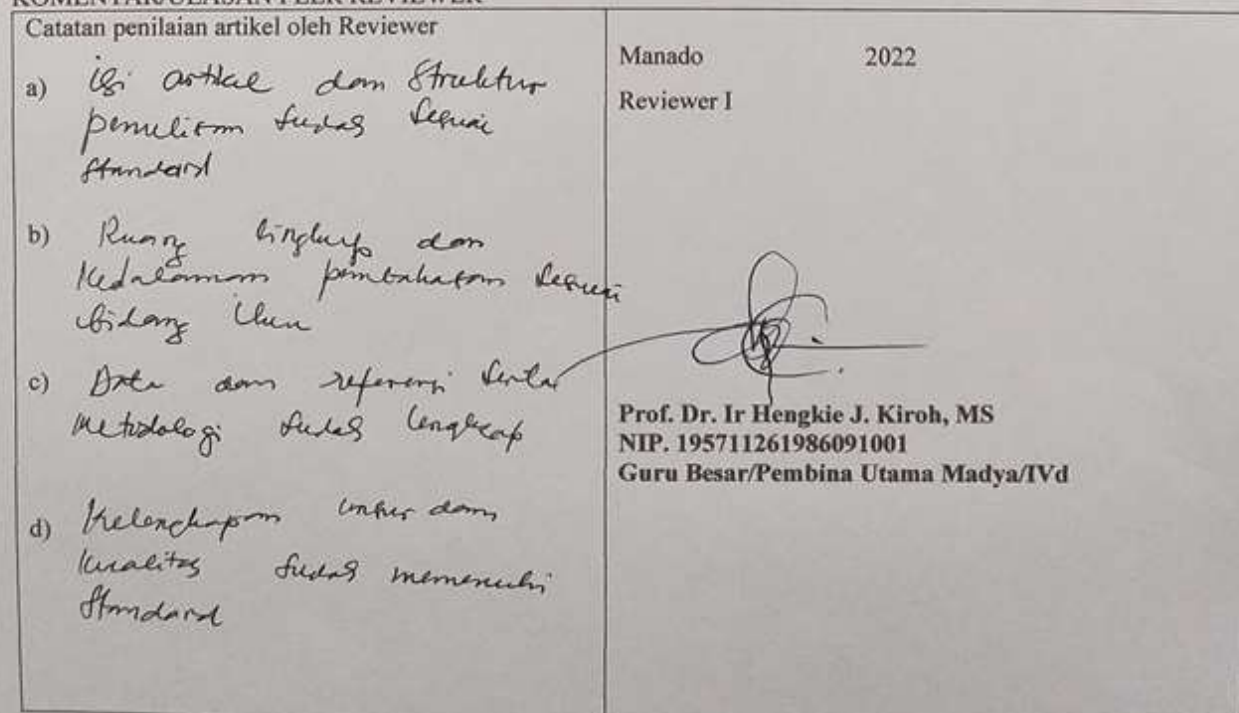 KOMENTAR/ULASAN PEER REVIEWER
Catatan penilaian artikel oleh Reviewer
a) isi artikel dan Struktur
penulisan sudah sesuai
standard
b) Ruang lingkup dan
Kedalaman pembahasan sesuai
bidang ilmu
c) Data dan referensi serta
metodologi sudah lengkap
d) Kelengkapan unsur dan
kualitas sudah memenuhi
Standard
Manado 2022
Reviewer I
Prof. Dr. Ir Hengkie J. Kiroh, MS
NIP. 195711261986091001
Guru Besar/Pembina Utama Madya/IVd